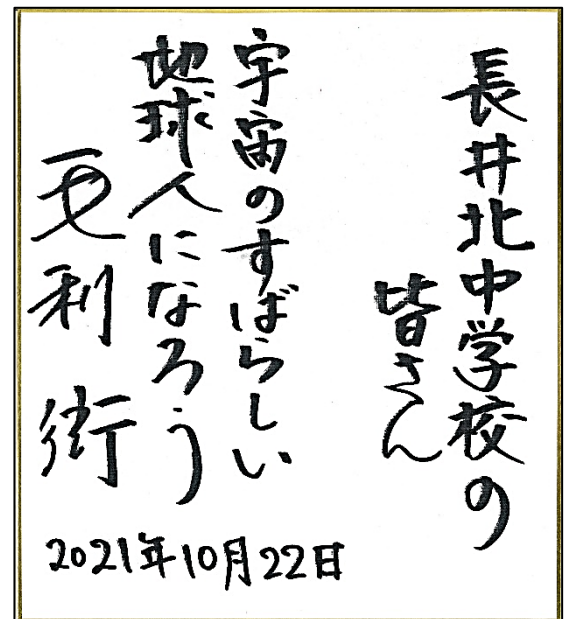 長井北中学校の
皆さん
宇宙のすばらしい
地球人になろう
毛利衛
2021年10月22日